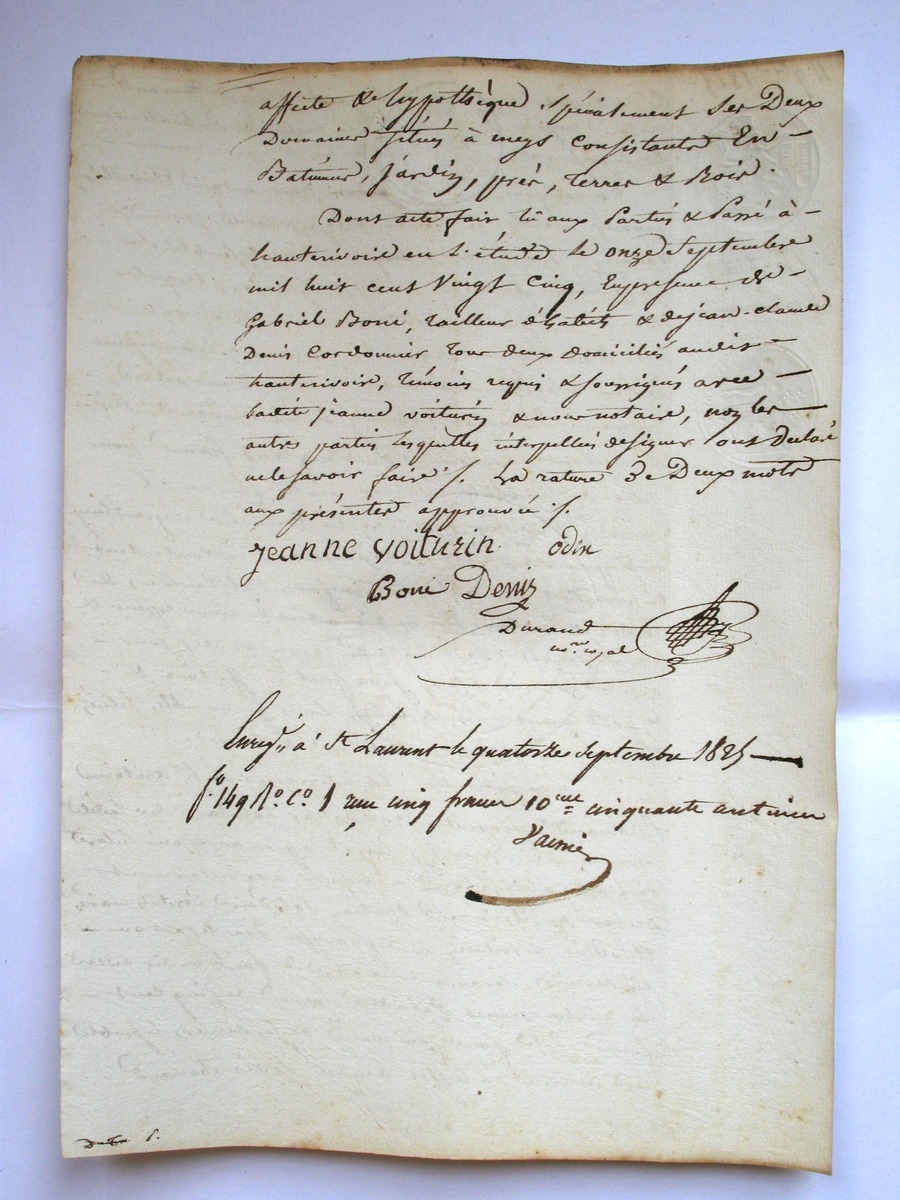 affecte & hypothèque spécialement ses Deux
Domaines situés à meys Consistants En
Batiments, jardin, prés, terres & Bois.
Dont acte fait lû aux Parties & Passé à
hauterivoire en l'étude le onze Septembre
mil huit cent Vingt Cinq, En presence de
Gabriel Boni, tailleur d'habits & de jean-claude
Denis Cordonnier tous deux domiciliés audit
hauterivoire, témoins requis & soussignés avec
ladite jeanne voiturin & nous notaire, non les
autres parties lesquelles interpellées de signer ont Déclaré
ne le savoir faire ./. La rature De Deux mots
aux présentes approuvée ./.
jeanne voiturin odin
Boni Deniz
Durand
nre royal
Enregt à St Laurent le quatorze septembre 1825
fo 149 Ro Co 1 reçu cinq francs 10me cinquante centimes